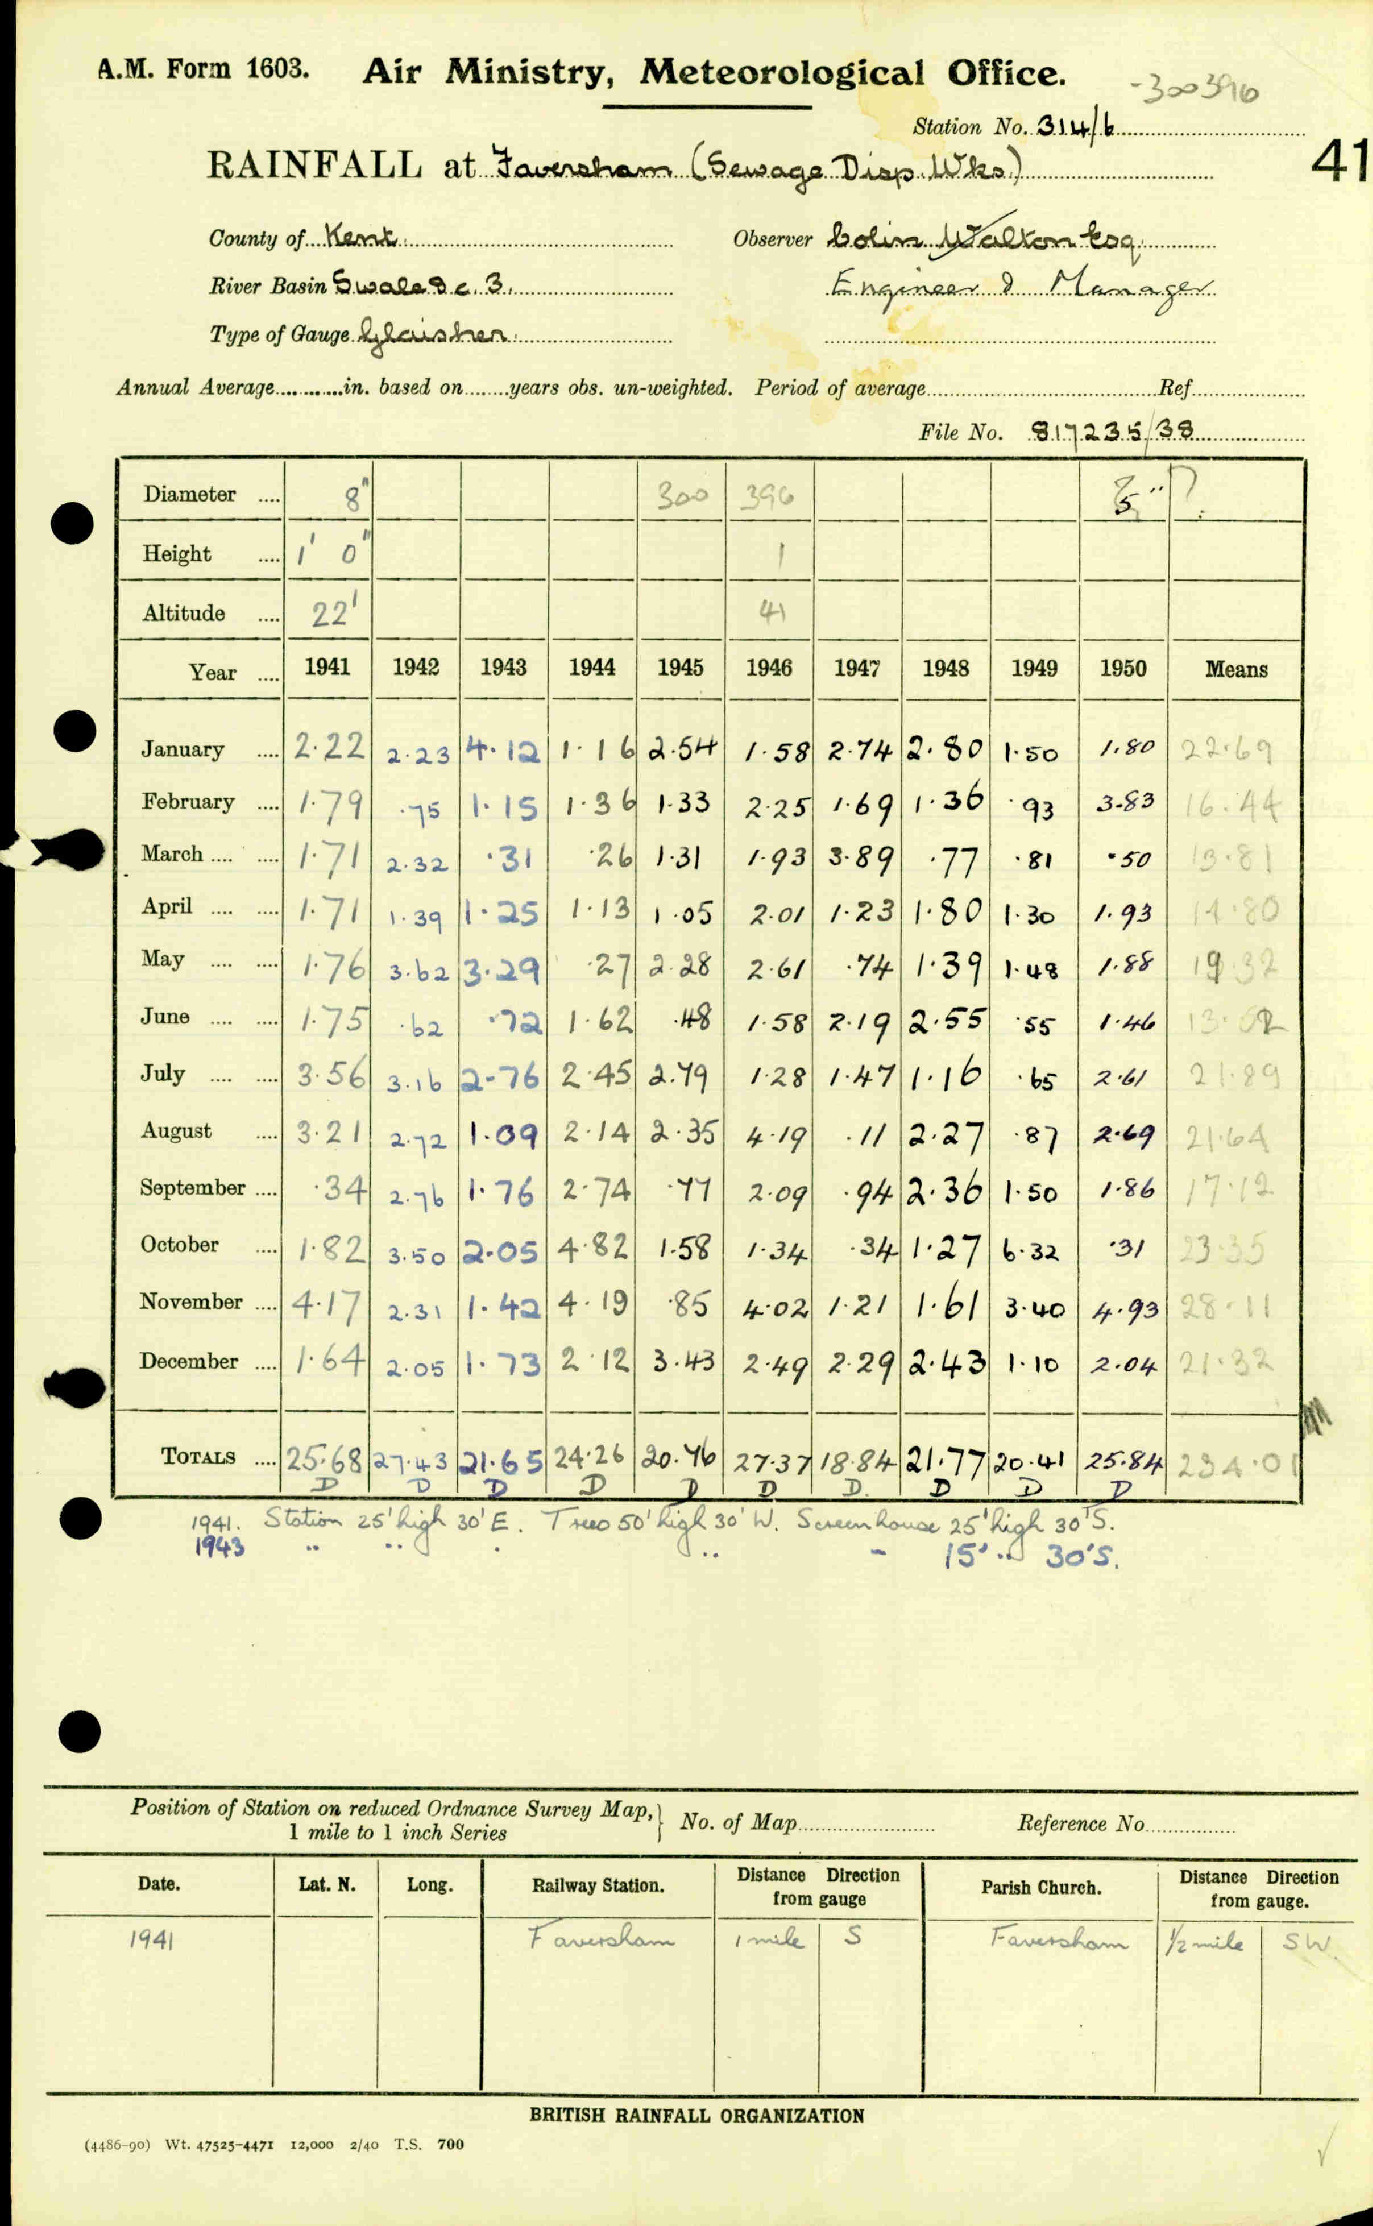 A.M. Form 1603. Air Ministry, Meteorological Office.
-300396
Station No. 314/6
41
RAINFALL at Faversham (Sewage Disp. Wks.)
County of Kent Observer Colin Walton Esq.
River Basin Swale &c. 3. Engineer & Manager
Type of Gauge Glaisher
Annual Average............in. based on........years obs. un-weighted. Period of average Ref.
File No. 817235/38
Diameter .... 8" 300 396 5" ?
Height .... 1' 0" 1
Altitude .... 22' 41
Year .... 1941 1942 1943 1944 1945 1946 1947 1948 1949 1950 Means
January .... 2.22 2.23 4.12 1.16 2.54 1.58 2.74 2.80 1.50 1.80 22.69
February .... 1.79 .75 1.15 1.36 1.33 2.25 1.69 1.36 .93 3.83 16.44
March .... .... 1.71 2.32 .31 .26 1.31 1.93 3.89 .77 .81 .50 13.81
April .... .... 1.71 1.39 1.25 1.13 1.05 2.01 1.23 1.80 1.30 1.93 14.80
May .... .... 1.76 3.62 3.29 .27 2.28 2.61 .74 1.39 1.48 1.88 19.32
June .... .... 1.75 .62 .72 1.62 .48 1.58 2.19 2.55 .55 1.46 13.52
July .... .... 3.56 3.16 2.76 2.45 2.79 1.28 1.47 1.16 .65 2.61 21.89
August .... 3.21 2.72 1.09 2.14 2.35 4.19 .11 2.27 .87 2.69 21.64
September .... .34 2.76 1.76 2.74 .77 2.09 .94 2.36 1.50 1.86 17.12
October .... 1.82 3.50 2.05 4.82 1.58 1.34 .34 1.27 6.32 .31 23.35
November .... 4.17 2.31 1.42 4.19 .85 4.02 1.21 1.61 3.40 4.93 28.11
December .... 1.64 2.05 1.73 2.12 3.43 2.49 2.29 2.43 1.10 2.04 21.32
TOTALS .... 25.68 27.43 21.65 24.26 20.76 27.37 18.84 21.77 20.41 25.84 234.01
D D D D D D D. D D D
1941. Station 25' high 30' E. Trees 50' high 30' W. Screenhouse 25' high 30' S.
1943 " " " " - 15' " 30' S.
Position of Station on reduced Ordnance Survey Map, } No. of Map Reference No.
1 mile to 1 inch Series
Date. Lat. N. Long. Railway Station. Distance Direction from gauge Parish Church. Distance Direction from gauge.
1941 Faversham 1 mile S Faversham 1/2 mile SW.
BRITISH RAINFALL ORGANIZATION
(4486-90) Wt. 47525-4471 12,000 2/40 T.S. 700